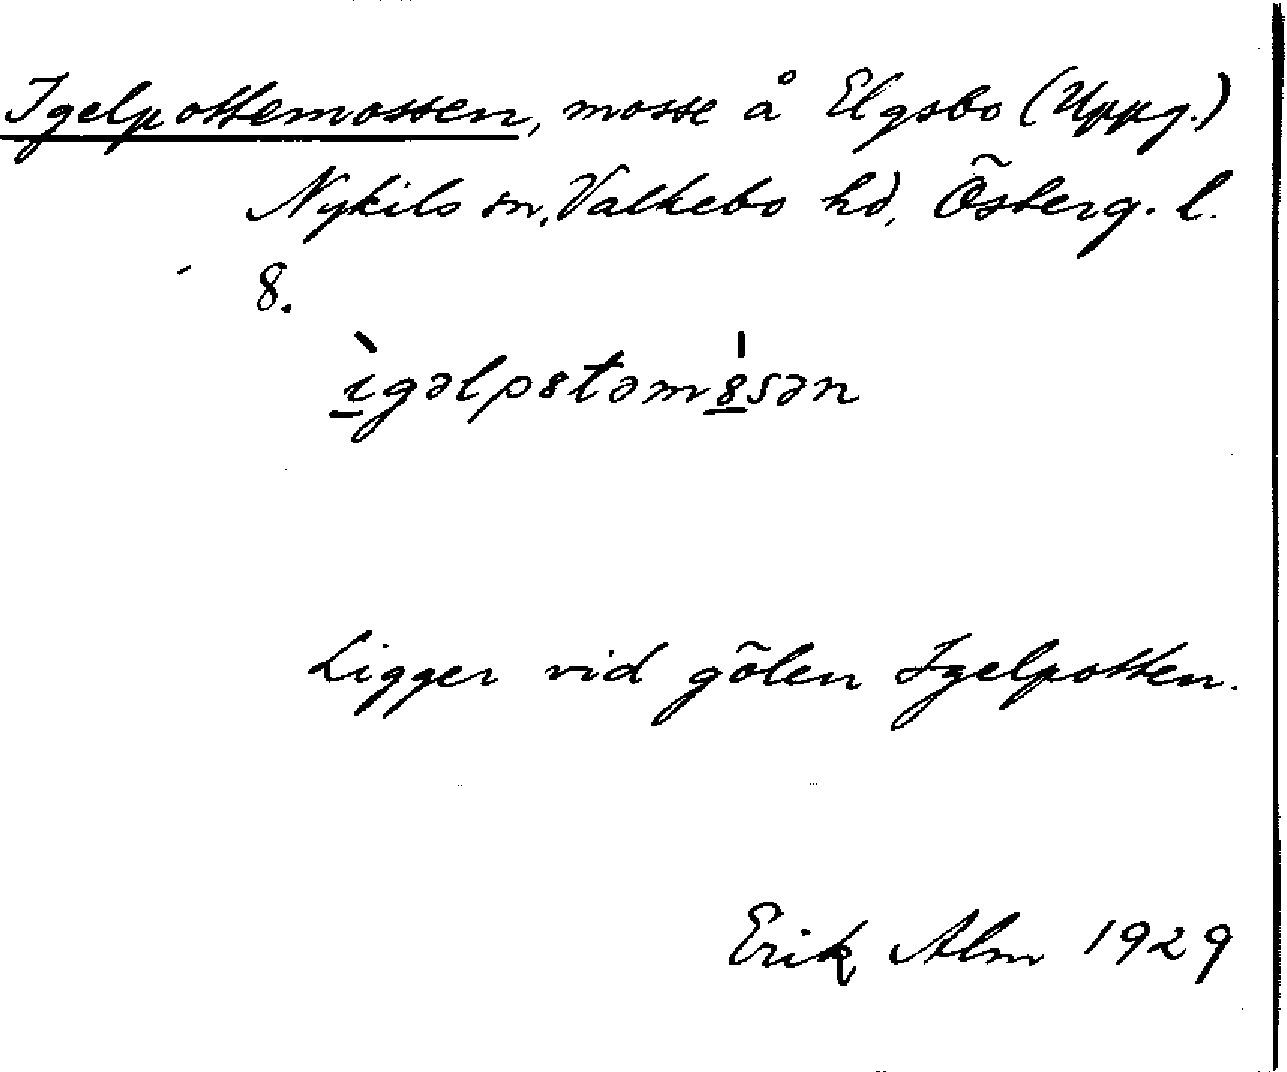 Igelpottemossen, mosse å Elgsbo (Uppg.)
Nykils sn, Valkebo hd, Österg. l.
8.
ìgəlpɷtəmɷ̍sən
Ligger vid gölen Igelpotten.
Erik Alm 1929